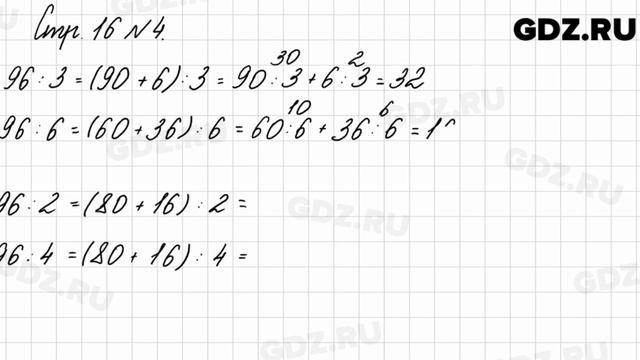 Стр. 16 №4.
GDZ.RU
96 : 3 = (90 + 6) : 3 = 90 : 3 + 6 : 3 = 32
30 2
96 : 6 = (60 + 36) : 6 = 60 : 6 + 36 : 6 = 1
10 6
96 : 2 = (80 + 16) : 2 =
96 : 4 = (80 + 16) : 4 =
GDZ.RU
GDZ.RU
GDZ.RU
GDZ.RU
GDZ.RU
GDZ.RU
GDZ.RU